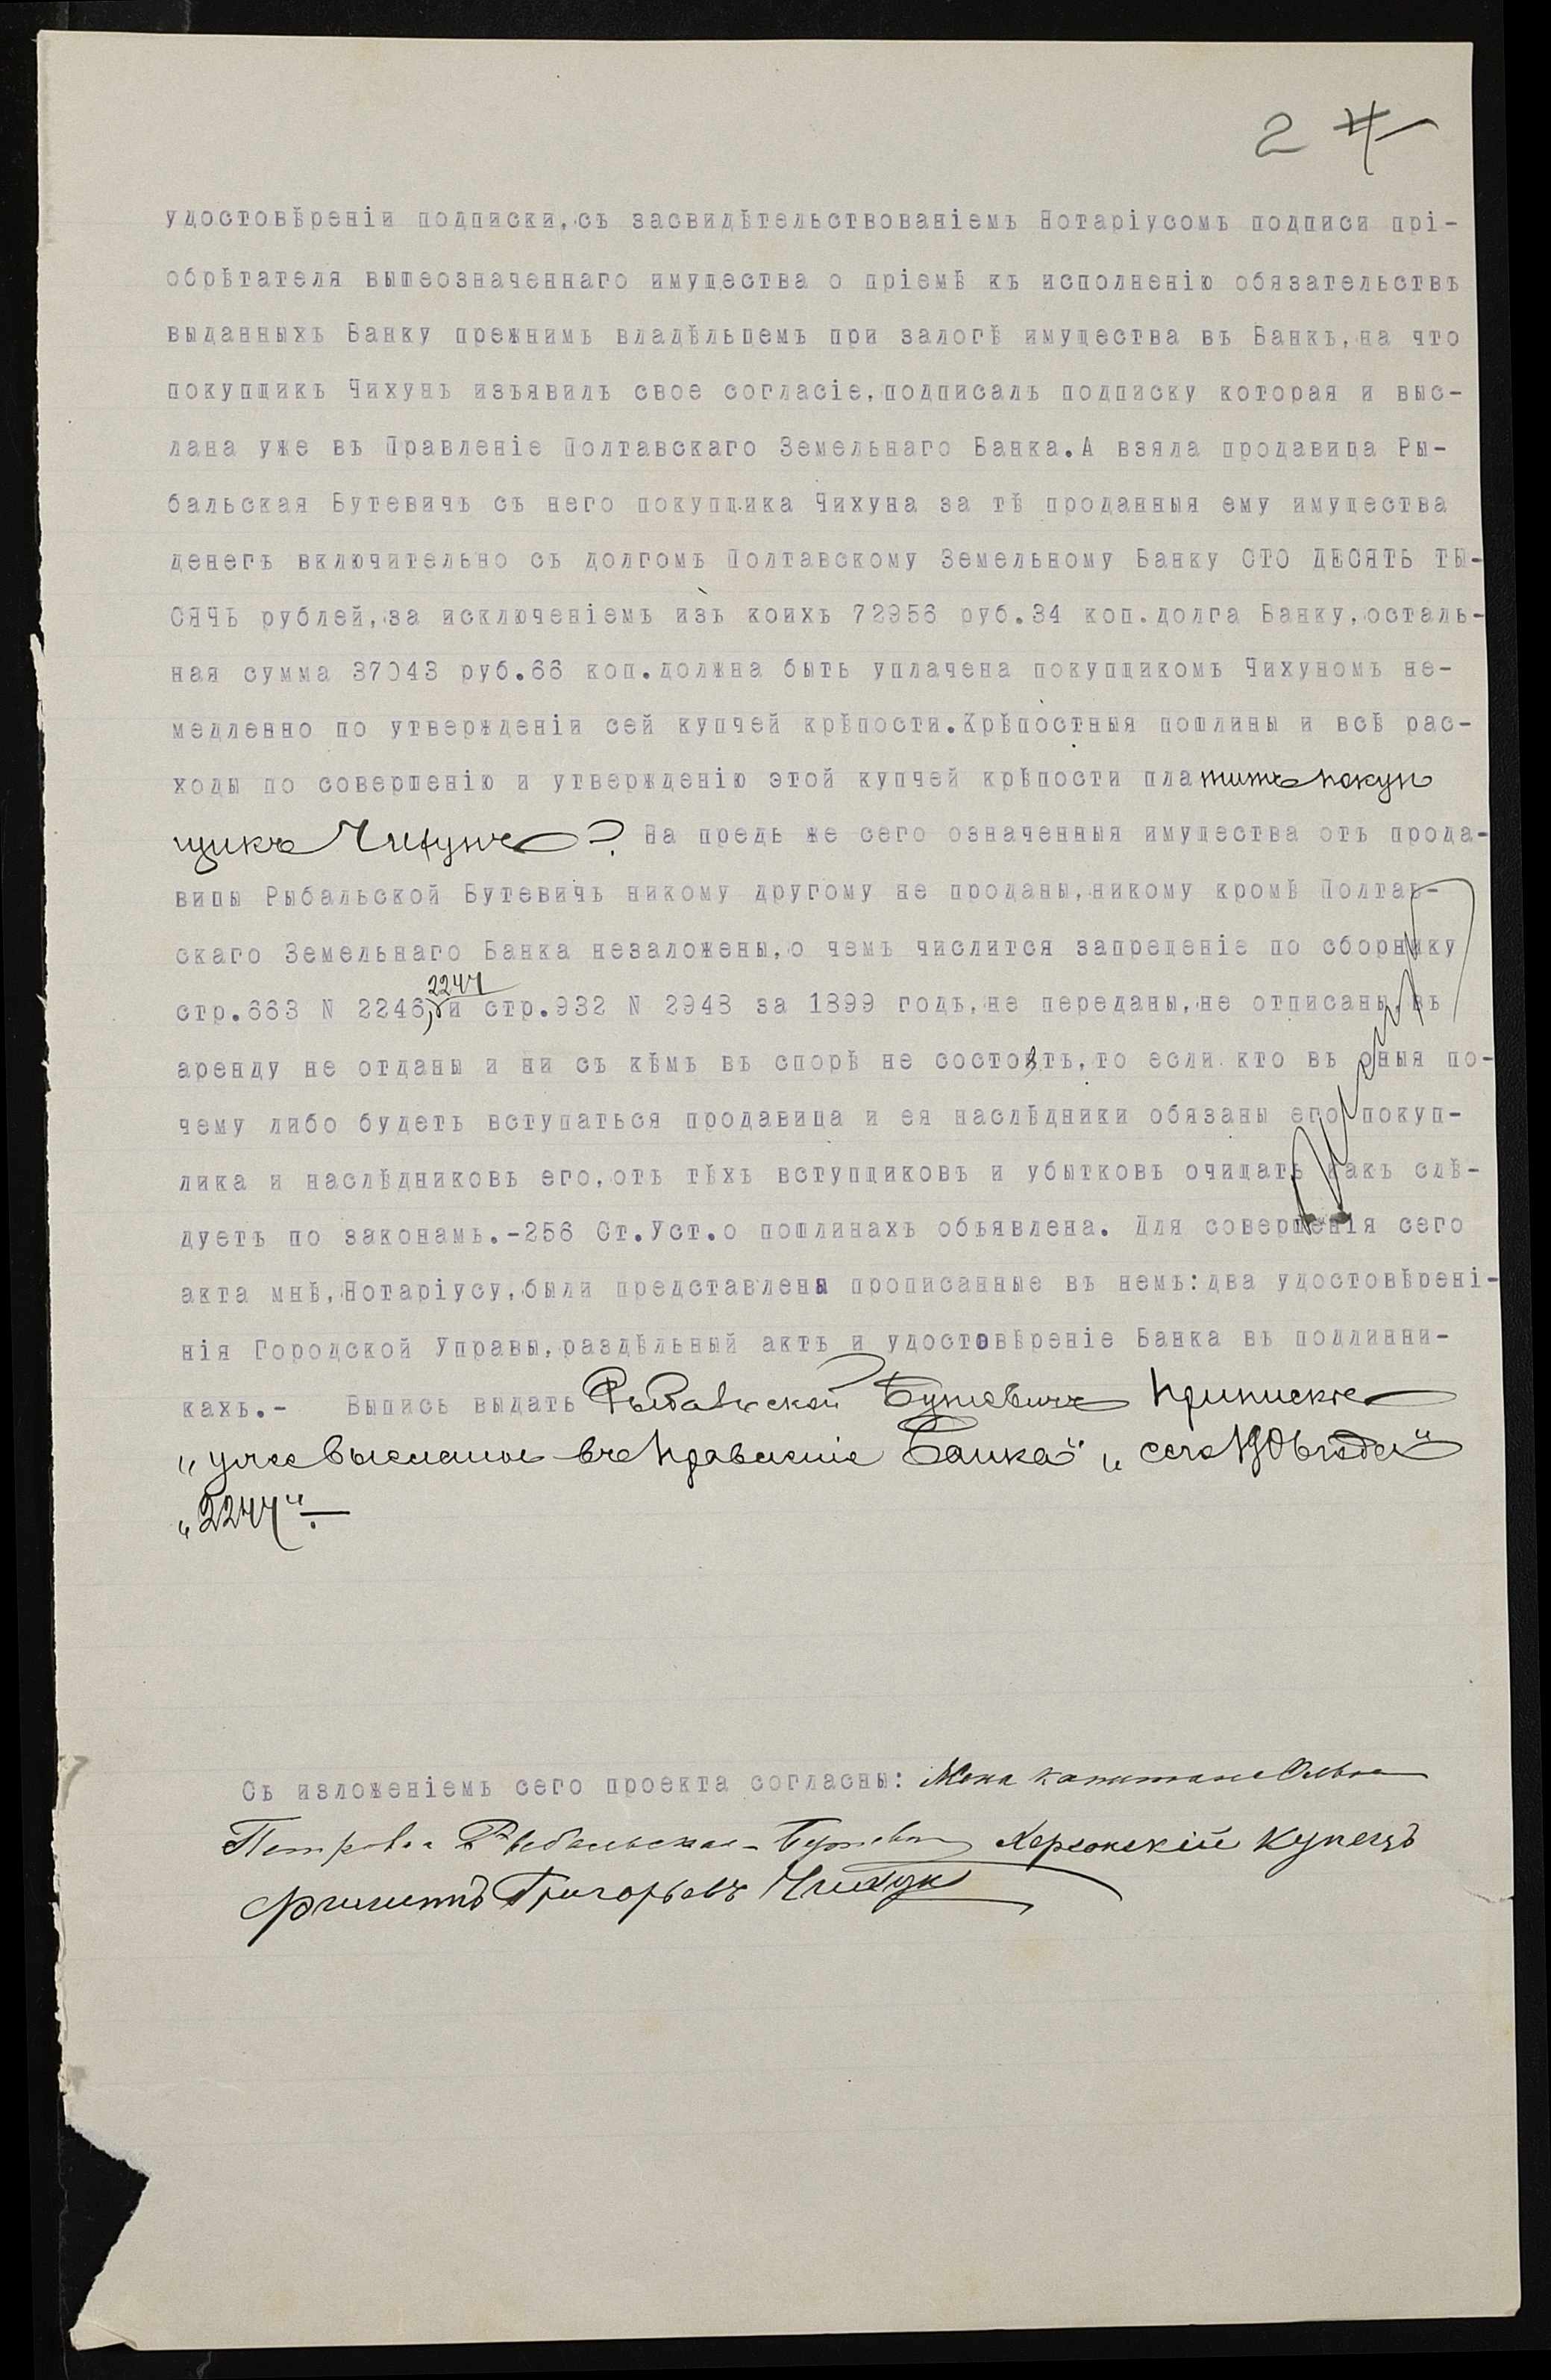 2
удостовѣреніи подписки,съ засвидѣтельствованіемъ Нотаріусомъ подписи прі-
обрѣтателя вышеозначеннаго имущества о пріемѣ къ исполненію обязательствъ
выданныхъ Банку прежнимъ владѣльцемъ при залогѣ имущества въ Банкъ,на что
покупщикъ Чихунъ изъявилъ свое согласіе,подписалъ подписку которая и выс-
лана уже въ Правленіе Полтавскаго Земельнаго Банка.А взяла продавица Ры-
бальская Бутевичъ съ него покупщика Чихуна за тѣ проданныя ему имущества
денегъ включительно съ долгомъ Полтавскому Земельному Банку СТО ДЕСЯТЬ ТЫ-
СЯЧЪ рублей,за исключеніемъ изъ коихъ 72956 руб.34 коп.долга Банку,осталь-
ная сумма 37043 руб.66 коп.должна быть уплачена покупщикомъ Чихуномъ не-
медленно по утвержденіи сей купчей крѣпости.Крѣпостныя пошлины и всѣ рас-
ходы по совершенію и утвержденію этой купчей крѣпости платитъ покуп
щикъ Чихунъ. На предь же сего означенныя имущества отъ прода-
вицы Рыбальской Бутевичъ никому другому не проданы,никому кромѣ Полтав-
скаго Земельнаго Банка незаложены,о чемъ числится запрещеніе по сборнику
2247
стр.663 N 2246, и стр.932 N 2948 за 1899 годъ,не переданы,не отписаны,въ
аренду не отданы и ни съ кѣмъ въ спорѣ не состоятъ,то если кто въ оныя по-
чему либо будетъ вступаться продавица и ея наслѣдники обязаны его покуп-
лика и наслѣдниковъ его,отъ тѣхъ вступщиковъ и убытковъ очищать какъ слѣ-
дуетъ по законамъ.-256 Ст.Уст.о пошлинахъ объявлена. Для совершенія сего
акта мнѣ,Нотаріусу,были представлены прописанные въ немъ:два удостовѣрені-
нія Городской Управы,раздѣльный актъ и удостовѣреніе Банка въ подлинни-
кахъ.- Выпись выдать Рыбальской Бутевичъ Приписки
„уже высланы въ Правленіе Банка" „сего года"
„2247".—
Съ изложеніемъ сего проекта согласны: Жена капитана Ольга
Петровна Рыбальская-Бутевичъ Херсонскій купецъ
Филиппъ Григорьевъ Чихунъ